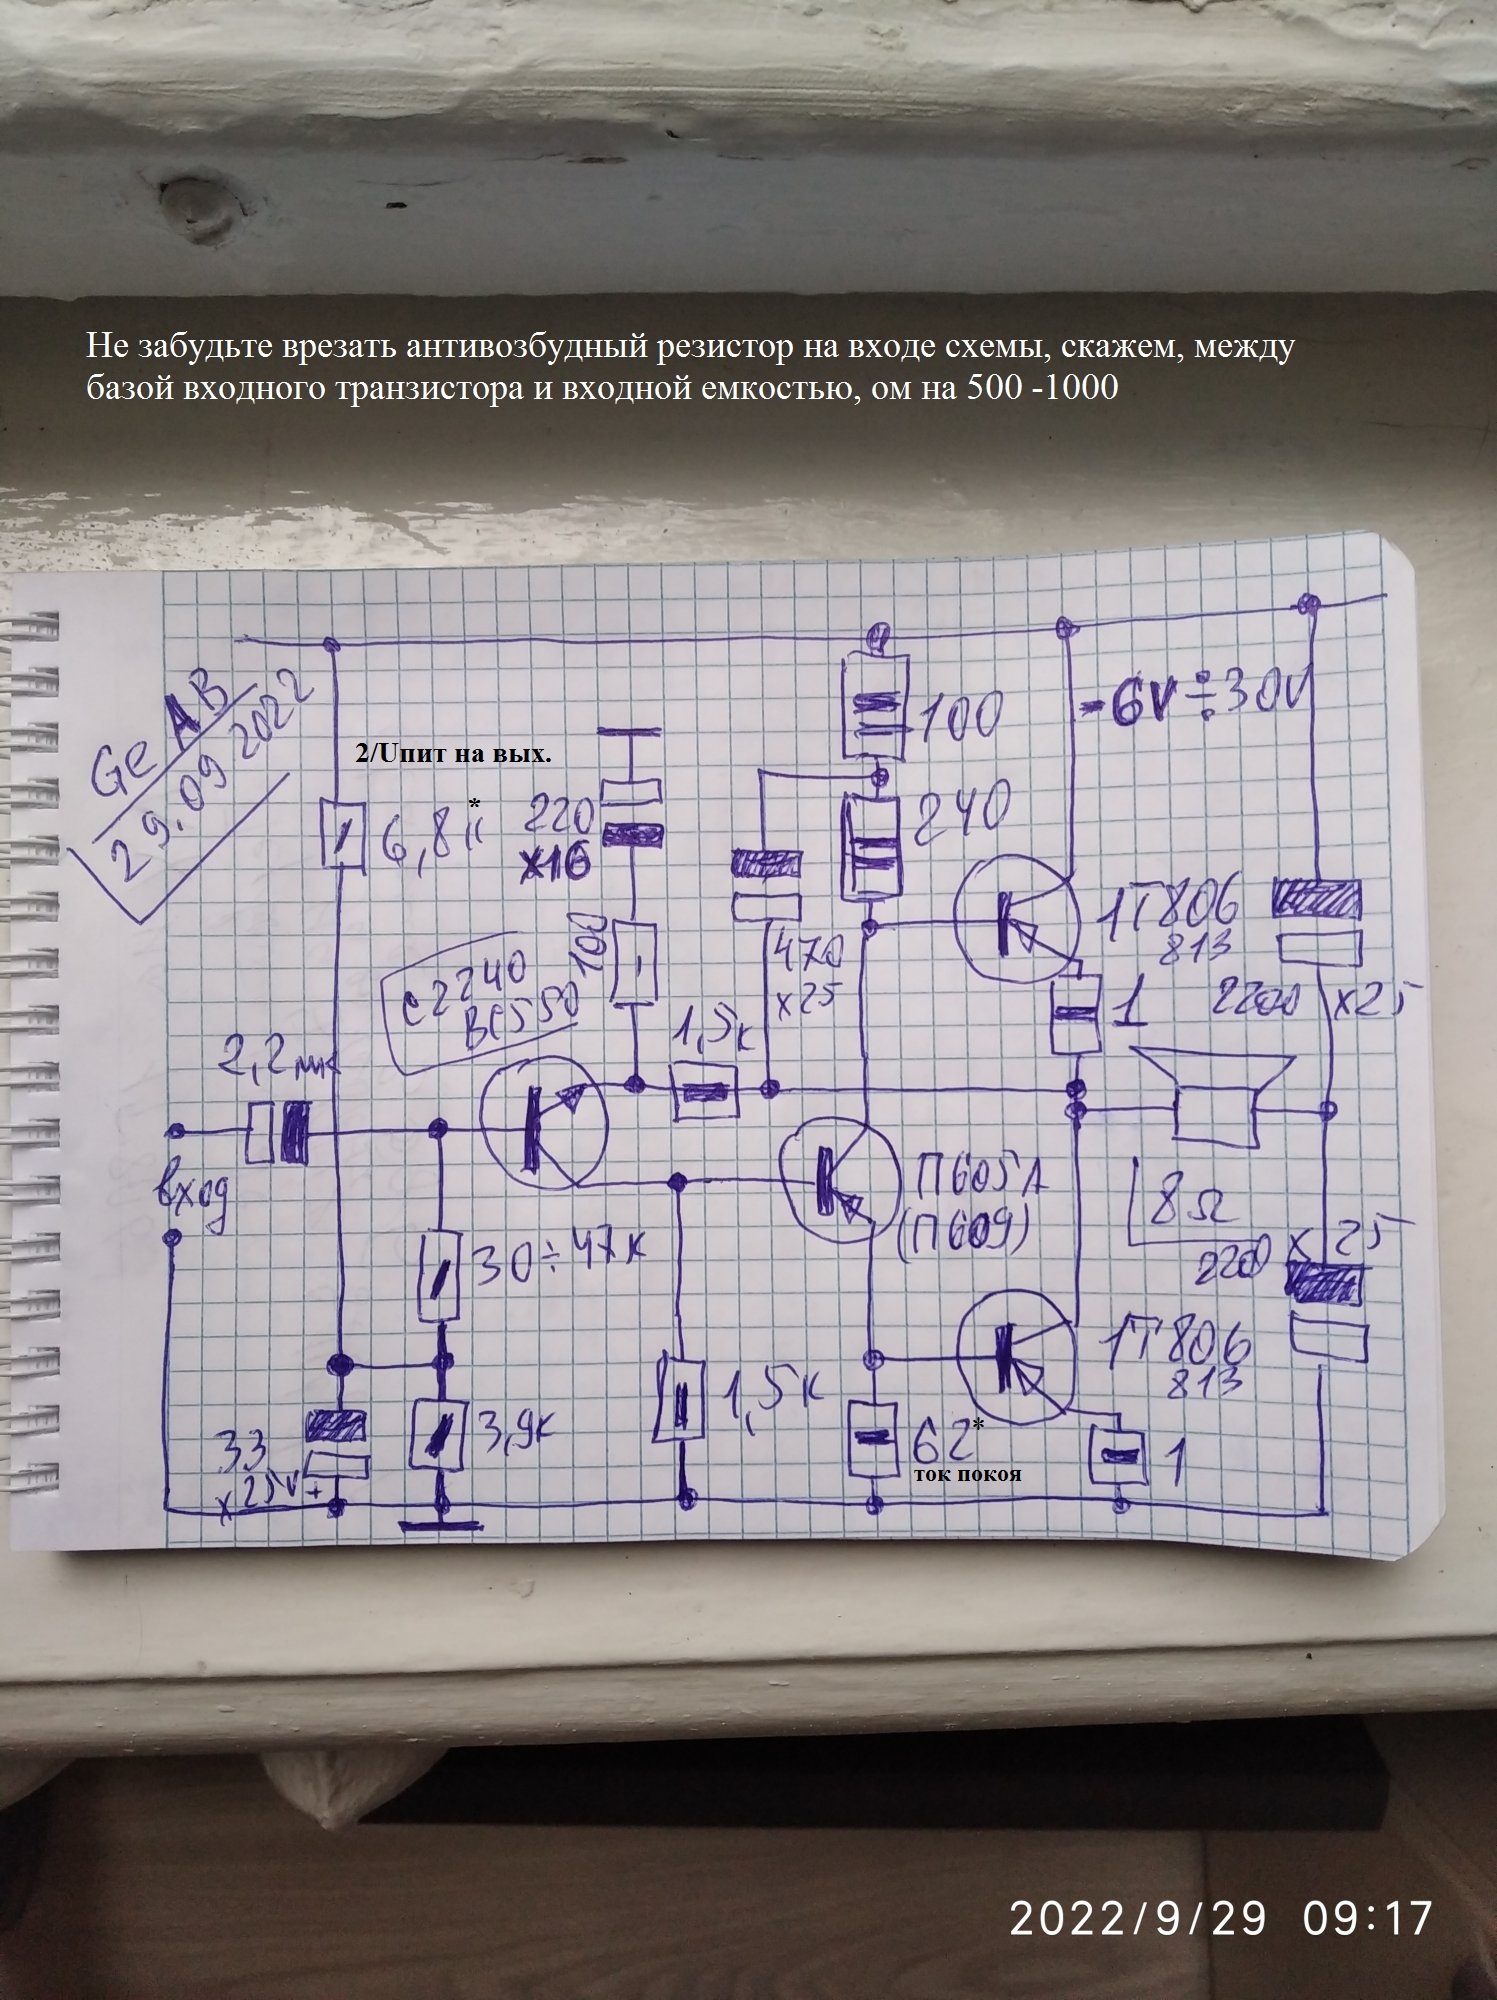 Не забудьте врезать антивозбудный резистор на входе схемы, скажем, между
базой входного транзистора и входной емкостью, ом на 500 -1000
Ge AB
29.09 2022
2/Uпит на вых.
6,8к*
220
x16
100
100
240
-6V÷30V
1Т806
813
2200 x25
470
x25
1
C2240
BC550
1,5к
2,2мк
вход
П605А
(П609)
8Ω
2200 x 25
30÷47к
1Т806
813
33
x25V+
3,9к
1,5к
62*
ток покоя
1
2022/9/29 09:17